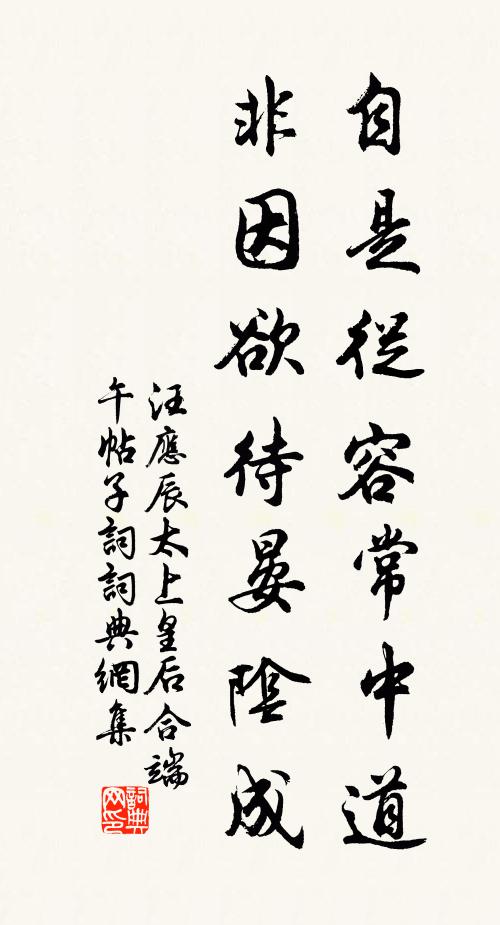 自是從容常中道
非因欲待晏陰成
汪應辰太上皇后合端
午帖子詞詞典網集
詞典网印